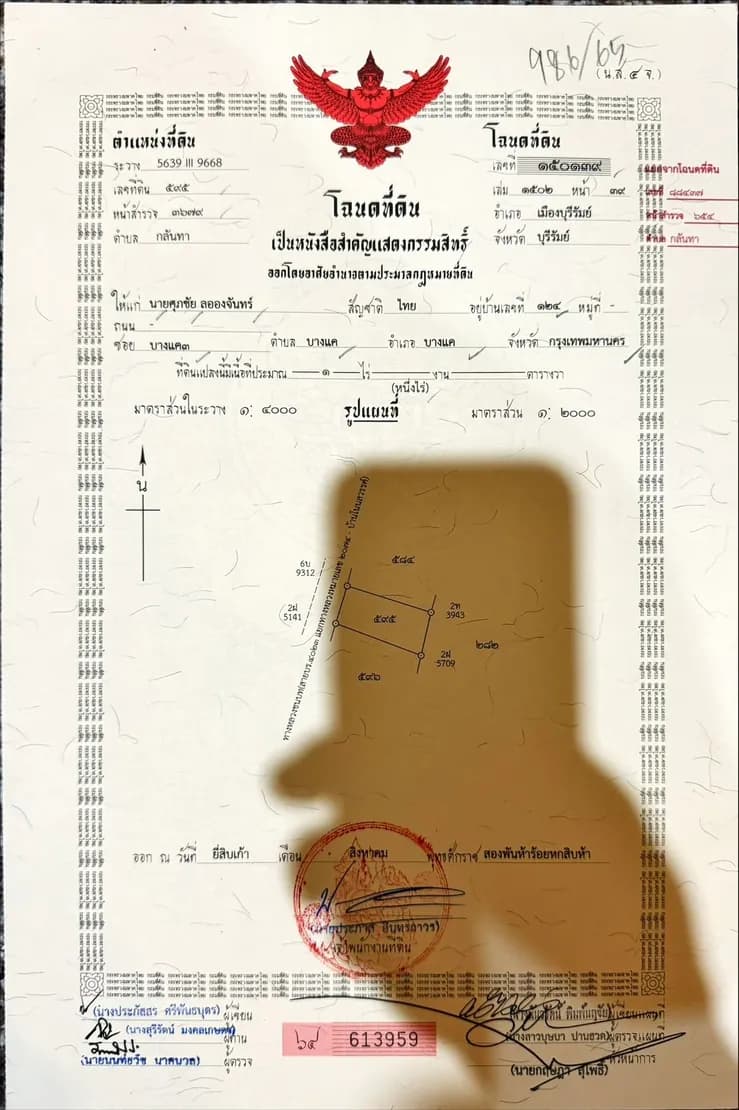 986/65
(น.ส.๔ จ.)
ตำแหน่งที่ดิน
ระวาง 5639 III 9668
เลขที่ดิน ๕๙๕
หน้าสำรวจ ๓๖๗๙
ตำบล กลันทา
โฉนดที่ดิน
เลขที่ ๑๕๐๑๓๙
เล่ม ๑๕๐๒ หน้า ๓๙
อำเภอ เมืองบุรีรัมย์
จังหวัด บุรีรัมย์
แยกจากโฉนดที่ดิน
เลขที่ ๘๘๔๓๗
หน้าสำรวจ ๖๕๔
ตำบล กลันทา
โฉนดที่ดิน
เป็นหนังสือสำคัญแสดงกรรมสิทธิ์
ออกโดยอาศัยอำนาจตามประมวลกฎหมายที่ดิน
ให้แก่ นายศุภชัย ลอองจันทร์ สัญชาติ ไทย อยู่บ้านเลขที่ ๑๒๔ หมู่ที่ -
ถนน -
ซอย บางแค๓ ตำบล บางแค อำเภอ บางแค จังหวัด กรุงเทพมหานคร
ที่ดินแปลงนี้มีเนื้อที่ประมาณ ๑ ไร่ - งาน - ตารางวา
(หนึ่งไร่)
มาตราส่วนในระวาง ๑: ๔๐๐๐ รูปแผนที่ มาตราส่วน ๑: ๒๐๐๐
น
๕๘๔
6บ
9312
2ฝ
5141
๕๙๕
2ท
3943
๒๘๒
2ฝ
5709
๕๙๖
ทางหลวงชนบท(สายบร.๔๐๒๓ แยกทางหลวงหมายเลข ๒๐๗๔ - บ้านโนนสวรรค์)
ออก ณ วันที่ ยี่สิบเก้า เดือน สิงหาคม พุทธศักราช สองพันห้าร้อยหกสิบห้า
(นายประภาส อินทร์ถาวร)
เจ้าพนักงานที่ดิน
(นางประภัสสร ศรีพันธบุตร) ผู้เขียน
(นางสุรีรัตน์ มงคลเกษตร) ผู้ทาน
(นายนนทธวัช นาคนวล) ผู้ตรวจ
๖๔ 613959
ผู้เขียนแผนที่
(นางสาวบุษบา ปานฮวด) ผู้ตรวจแผนที่
(นายกฤษฎา สุโพธิ์) หัวหน้าการ